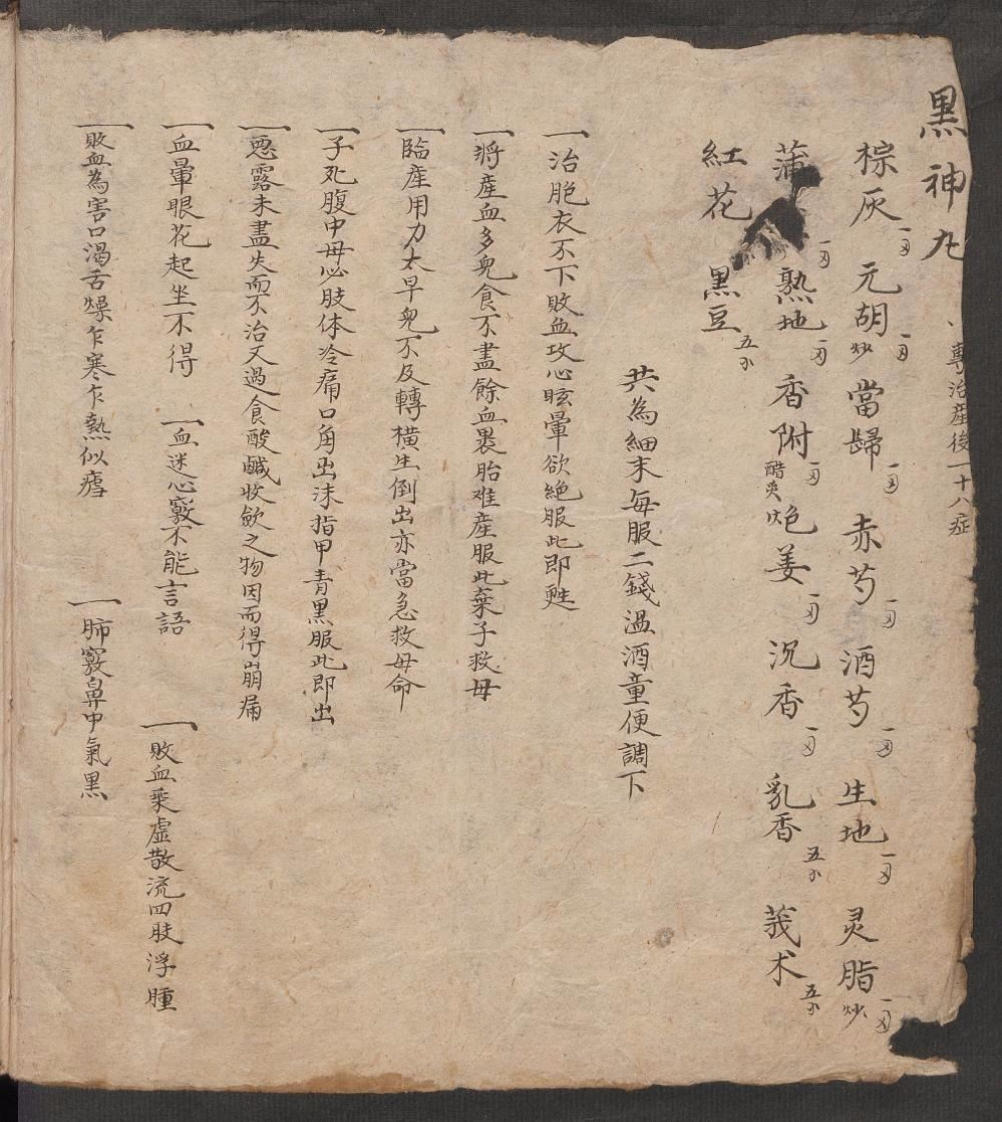 黑神丸 、專治産後一十八症
棕灰一両 元胡炒一両 當歸一両 赤芍一両 酒芍一両 生地一両 灵脂炒一両
蒲 一両 熟地一両 香附醋炙一両 炮姜一両 沉香一両 乳香五分 莪术五分
紅花 黑豆五分
共為細末每服二錢温酒童便調下
一治胞衣不下敗血攻心眩暈欲絶服此即甦
一將産血多兒食不盡餘血裹胎难産服此棄子救母
一臨産用力太早兒不及轉橫生倒出亦當急救母命
一子死腹中母必肢体冷痛口角出沫指甲青黑服此即出
一惡露未盡失而不治又過食酸鹹收歛之物因而得崩漏
一血暈眼花起坐不得 一血迷心竅不能言語
一敗血乘虛散流四肢浮腫
一敗血為害口渴舌燥乍寒乍熱似瘧 一肺竅鼻中氣黑